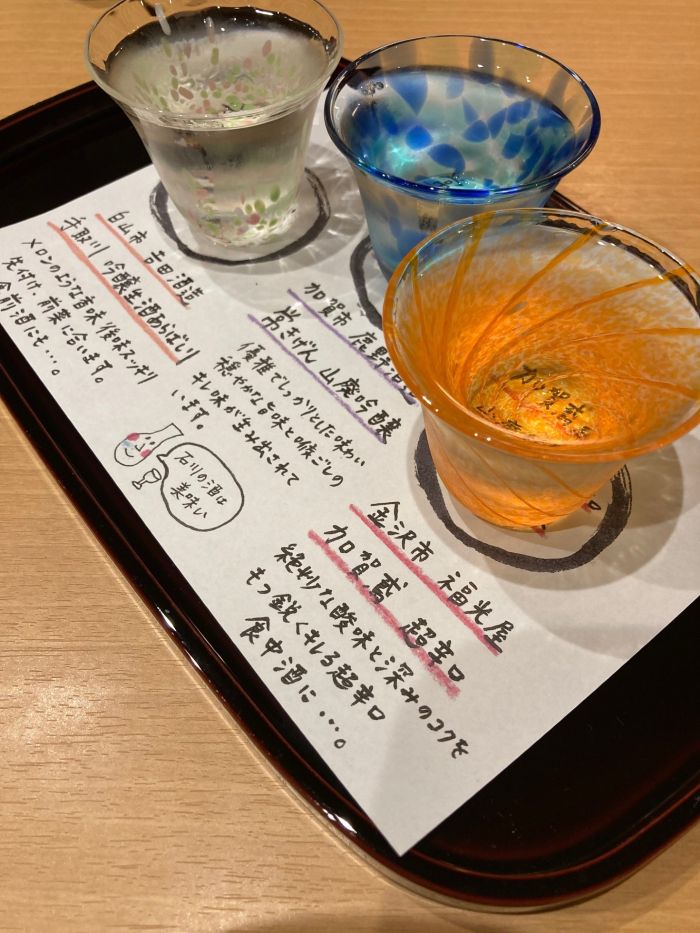 白山市 吉田酒造
手取川 吟醸生酒あらばしり
メロンのような香味 後味スッキリ
先付け、前菜に合います。
食前酒にも…。
加賀市 鹿野酒造
常きげん 山廃吟醸
優雅でしっかりとした味わい
穏やかな旨味と喉ごしの
キレ味が生み出されて
います。
石川の酒は
美味い
加賀鳶
山廃
金沢市 福光屋
加賀鳶 超辛口
絶妙な酸味と深みのコクを
もつ鋭くキレる超辛口
食中酒に…。